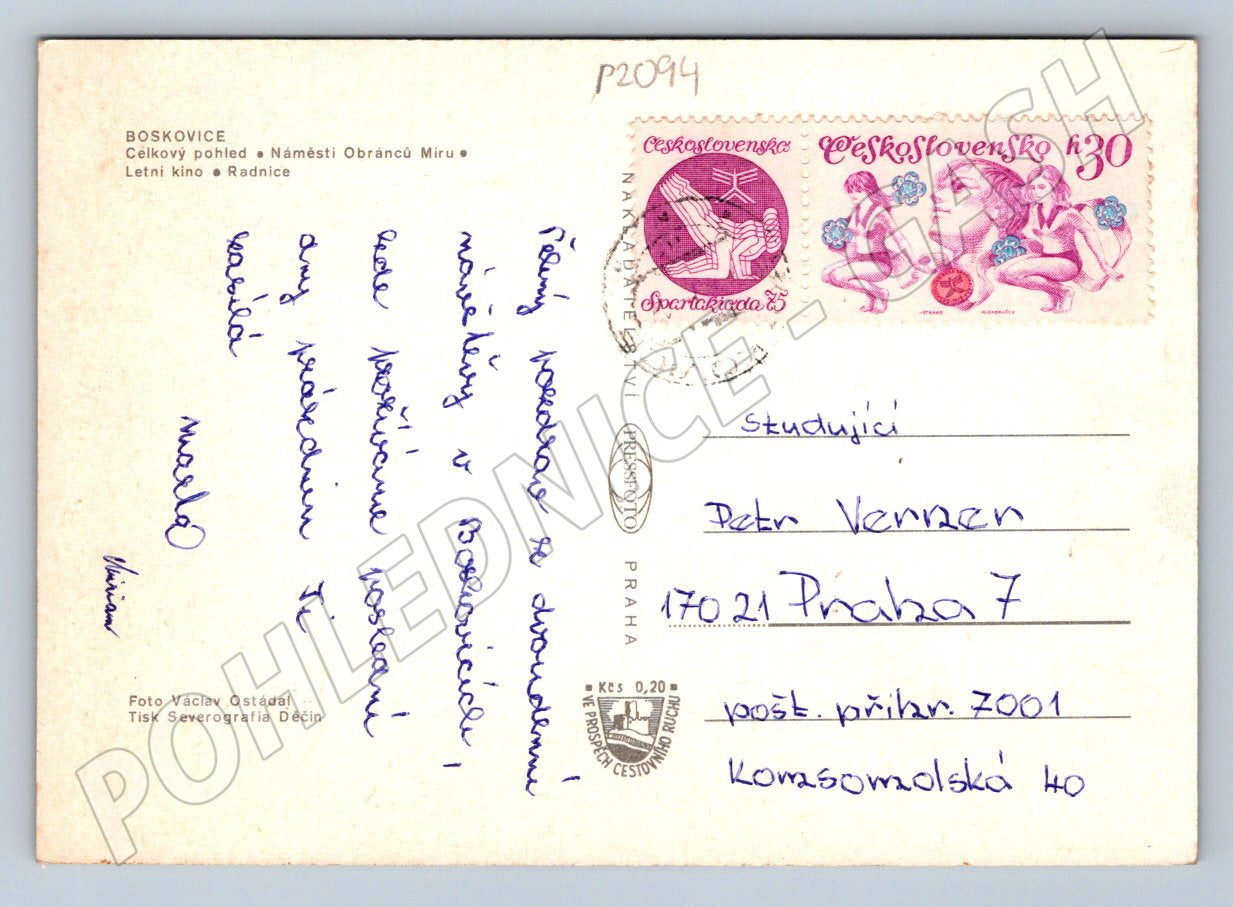 P2094
BOSKOVICE
Celkový pohled • Náměstí Obránců Míru •
Letní kino • Radnice
Československo
Spartakiáda 75
Československo h30
pozdrav z dvoudenní
návštěvy v Boskovicích,
kde prožíváme poslední
dny prázdnin Ti
zasílá
Marta
Miriam
Foto Václav Ostádal
Tisk Severografia Děčín
NAKLADATELSTVÍ PRESSFOTO PRAHA
• Kčs 0,20 •
VE PROSPĚCH CESTOVNÍHO RUCHU
Studující
Petr Verner
170 21 Praha 7
pošt. přihr. 7001
Komsomolská 40
POHLEDNICE - GASH